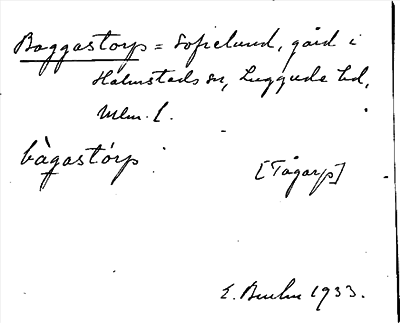 Baggastorp = Sofielund, gård i
Halmstads sn, Luggude hd,
Mlm. l.
bàgastórp
[Tågarp]
E. 1933.